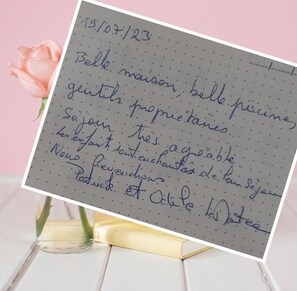 19/07/23
Belle maison, belle piscine,
gentils propriétaires
Séjour très agréable.
Les enfants sont enchantés de leur séjour
Nous
Patrick et Odile